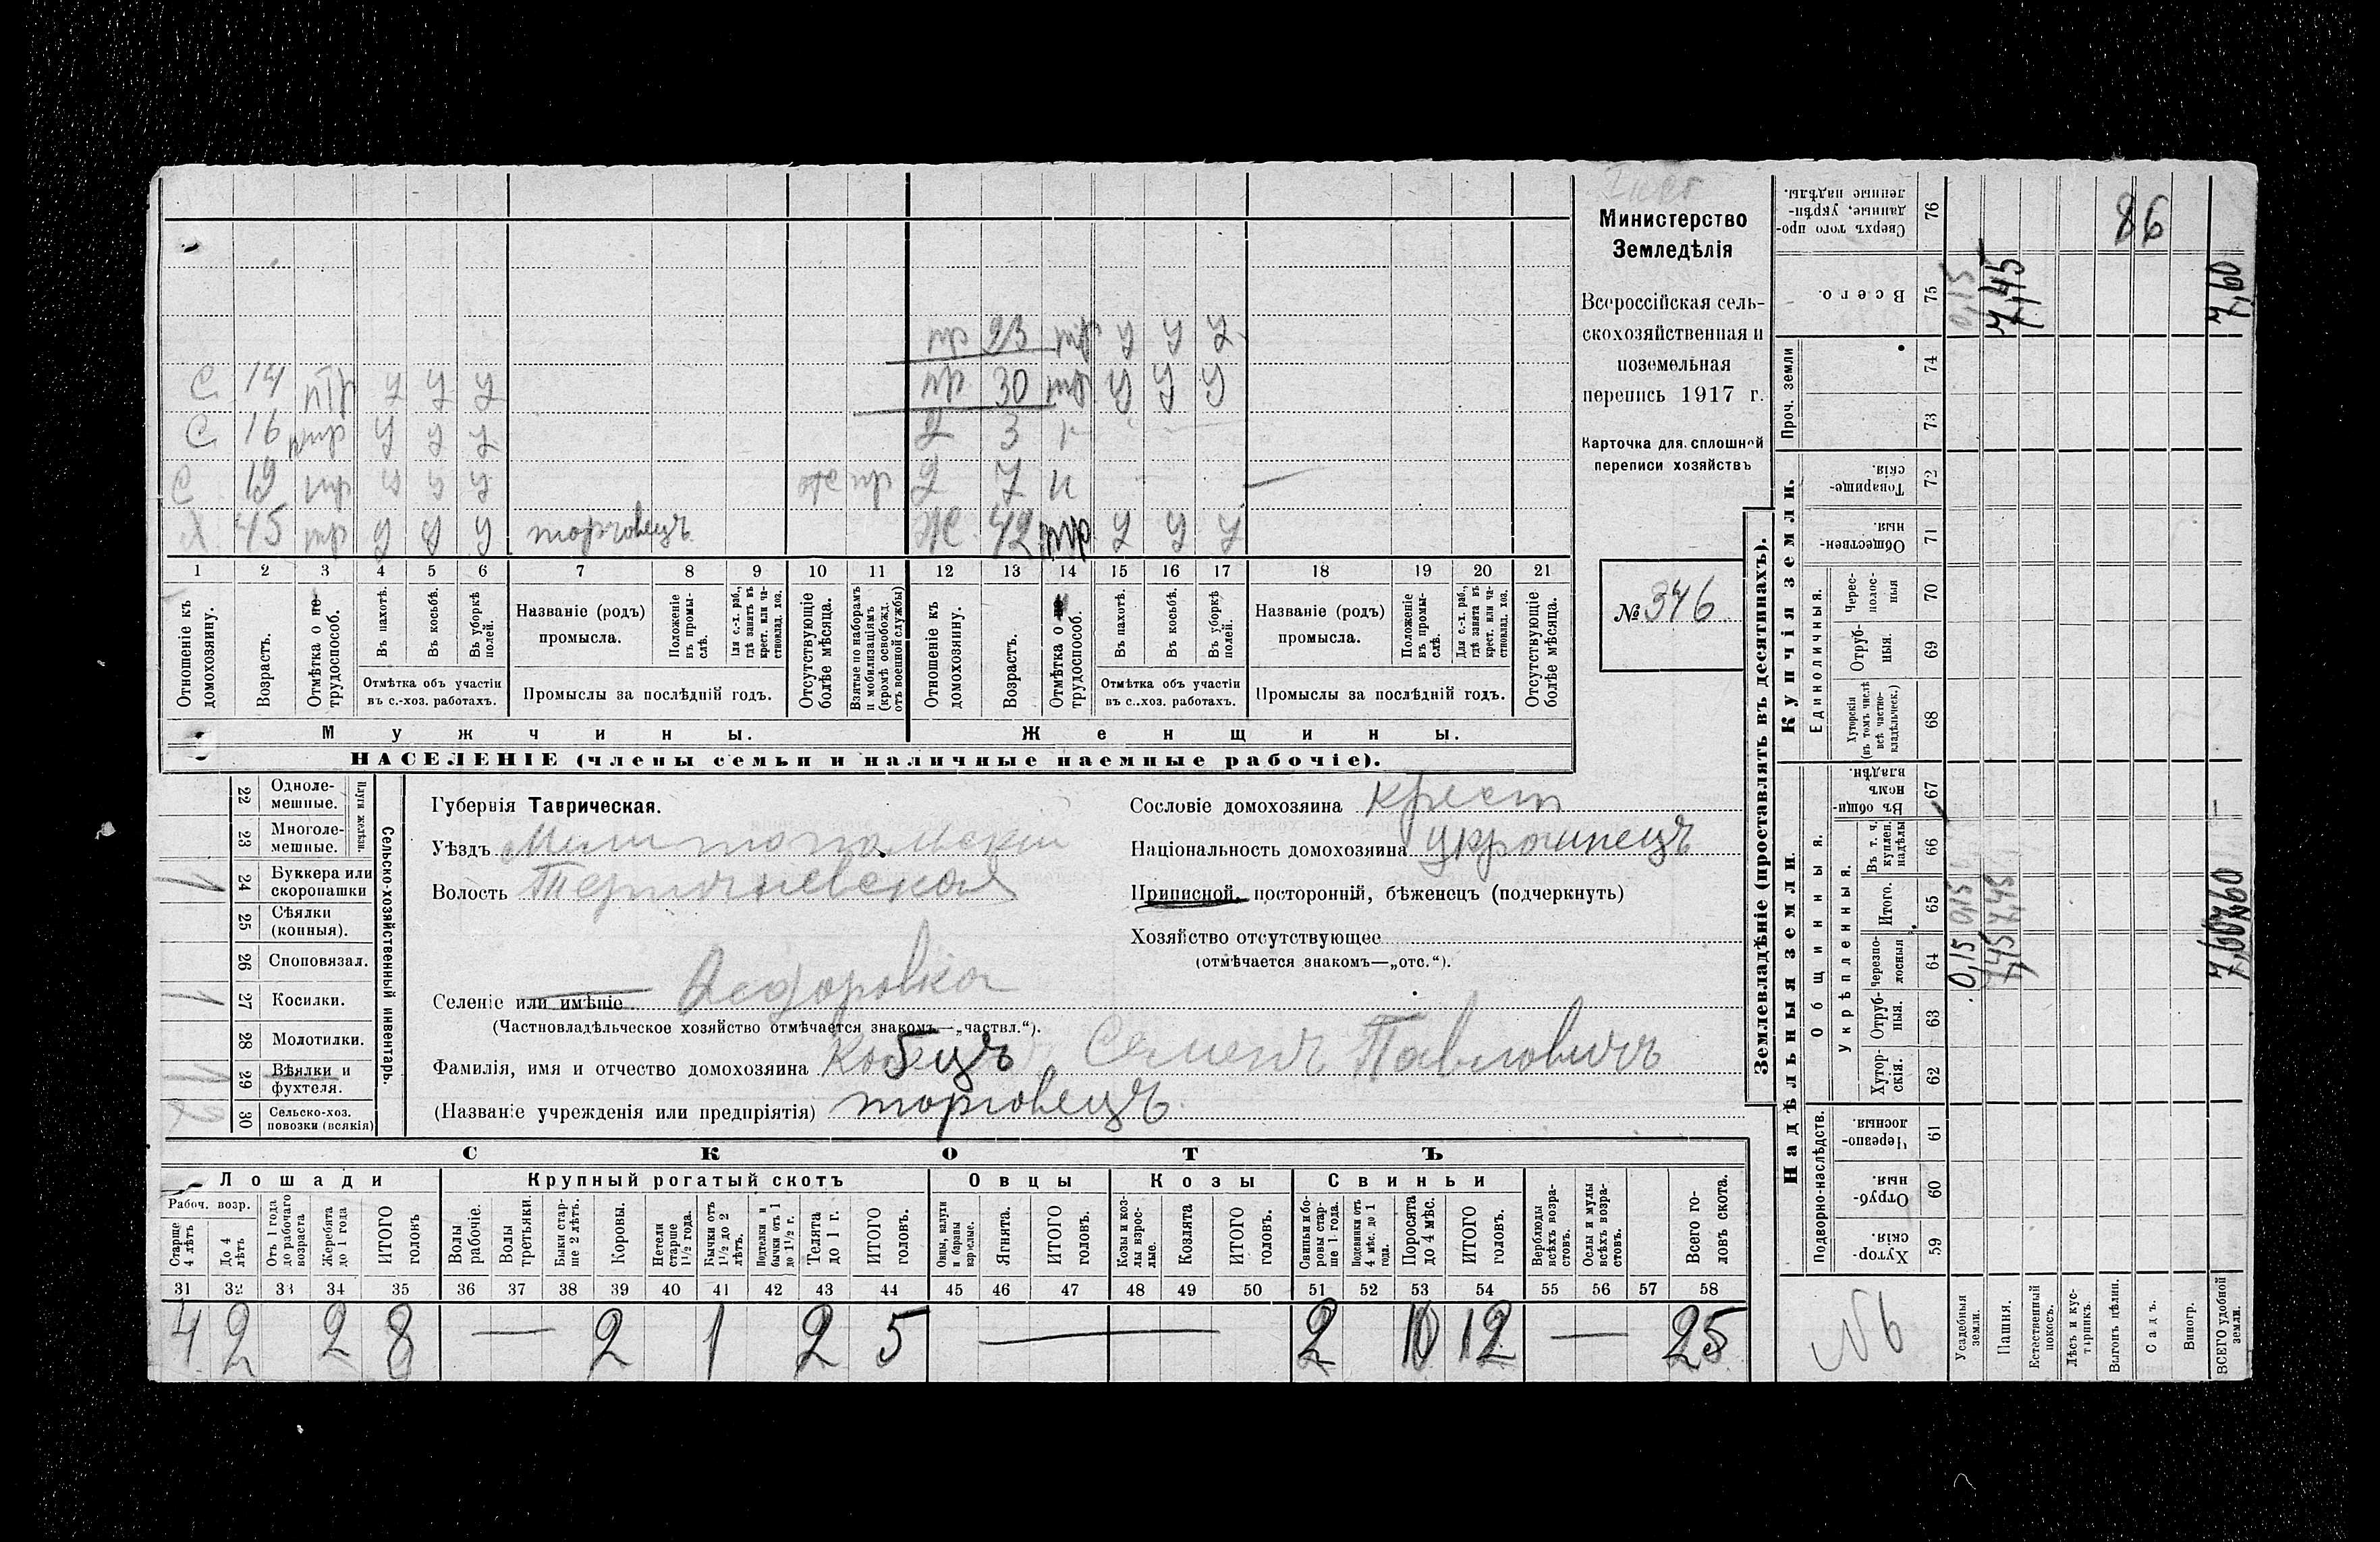 Министерство
Земледѣлія
Всероссійская сель-
скохозяйственная и
поземельная
перепись 1917 г.
Карточка для сплошной
переписи хозяйствъ
№ 346
пр 23 тр у у у
С 14 птр у у у
пр 30 тр у у у
С 16 птр у у у
Д 3 н
С 19 тр у у у отс пр
Д 7 н —
Х 45 тр у у у торговецъ
Ж 42 тр у у у
1 2 3 4 5 6 7 8 9 10 11 12 13 14 15 16 17 18 19 20 21
Отношеніе къ домохозяину.
Возрастъ.
Отмѣтка о не-трудоспособ.
Въ пахотѣ.
Въ косьбѣ.
Въ уборкѣ полей.
Отмѣтка объ участіи въ с.-хоз. работахъ.
Названіе (родъ) промысла.
Положеніе въ промы-слѣ.
Для с.-х. раб., гдѣ занятъ въ крест. или ча-стновлад. хоз.
Промыслы за послѣдній годъ.
Отсутствующіе болѣе мѣсяца.
Взятые по наборамъ и мобилизаціямъ (кромѣ освобожд. отъ военной службы)
Отношеніе къ домохозяину.
Возрастъ.
Отмѣтка о не трудоспособ.
Въ пахотѣ.
Въ косьбѣ.
Въ уборкѣ полей.
Отмѣтка объ участіи въ с..хоз. работахъ.
Названіе (родъ) промысла.
Положеніе въ промы-слѣ.
Для с.-х. раб., гдѣ занята въ крест. или ча-стновлад. хоз.
Промыслы за послѣдній годъ.
Отсутствующіе болѣе мѣсяца.
Мужчины.
Женщины.
НАСЕЛЕНІЕ (члены семьи и наличные наемные рабочіе).
Сельско-хозяйственный инвентарь.
Плуги желѣзн.
22 Однолемешные.
23 Многолемешные.
24 Буккера или скоропашки 1
25 Сѣялки (конныя).
26 Сноповязал.
27 Косилки. 1
28 Молотилки.
29 Вѣялки и фухтеля. 1
30 Сельско-хоз. повозки (всякія) 2
Губернія Таврическая.
Уѣздъ Мелитопольскій
Волость
Селеніе или имѣніе Федоровка
(Частновладѣльческое хозяйство отмѣчается знакомъ—„частвл.“).
Фамилія, имя и отчество домохозяина Семенъ Павловичъ
(Названіе учрежденія или предпріятія) торговецъ
Сословіе домохозяина крест
Національность домохозяина
Приписной, посторонній, бѣженецъ (подчеркнуть)
Хозяйство отсутствующее
(отмѣчается знакомъ—„отс.“).
СКОТЪ
Лошади Крупный рогатый скотъ Овцы Козы Свиньи
Рабоч. возр.
Старше 4 лѣтъ
До 4 лѣтъ
Отъ 1 года до рабочаго возраста
Жеребята до 1 года
ИТОГО головъ
Волы рабочіе.
Волы третьяки.
Быки стар-ше 2 лѣтъ.
Коровы.
Нетели старше 1½ года.
Бычки отъ 1½ до 2 лѣтъ.
Подтелки и бычки отъ 1 до 1½ г.
Телята до 1 г.
ИТОГО головъ.
Овцы, валухи и бараны взрослые.
Ягнята.
ИТОГО головъ.
Козы и коз-лы взрос-лые.
Козлята
ИТОГО головъ.
Свиньи и бо-ровы стар-ше 1 года.
Подсвинки отъ 4 мѣс. до 1 года.
Поросята до 4 мѣс.
ИТОГО головъ.
Верблюды всѣхъ возра-стовъ.
Ослы и мулы всѣхъ возра-стовъ.
Всего го-ловъ скота.
31 32 33 34 35 36 37 38 39 40 41 42 43 44 45 46 47 48 49 50 51 52 53 54 55 56 57 58
4 2 2 8 — 2 1 2 5 — 2 10 12 — 25
Землевладѣніе (проставлять въ десятинахъ).
Надѣльныя земли.
Купчія земли.
Подворно-наслѣдств.
Общинныя.
Укрѣпленныя.
Единоличныя.
Проч. земли
59 Хутор-скія.
60 Отруб-ныя.
61 Черезпо-лосныя.
62 Хутор-скія.
63 Отруб-ныя.
64 Черезпо-лосныя
65 Итого.
66 Въ т. ч. куплен. надѣлы
67 Въ общи-номъ владѣн.
68 Хуторскія (въ томъ числѣ всѣ частно-владѣльческ.)
69 Отруб-ныя.
70 Черес-полос-ныя
71 Обществен-ныя.
72 Товарище-скія.
73
74
75 Всего.
76 Сверхъ того про-данные, укрѣп-ленные надѣлы.
Усадебныя земли. 0,15 0,15 0,15
Пашня. 7,45 7,45 7,45
Естественный покосъ.
Лѣсъ и кус-тарникъ.
Выгонъ цѣлин.
Садъ.
Виногр.
ВСЕГО удобной земли. 7,60 7,60 7,60
86
№6